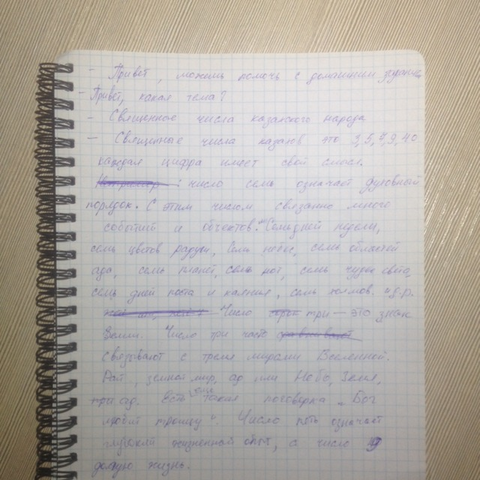 - Привет, можешь помочь с домашним заданием
- Привет, какая тема?
- Священные числа казахского народа
- Священные числа казахов это 3, 5, 7, 9, 40
каждая цифра имеет свой смысл.
: число семь означает духовный
порядок. С этим числом связанно много
событий и объектов. Семь дней недели,
семь цветов радуги, семь небес, семь областей
ада, семь планет, семь нот, семь чудес света,
семь дней поста и каяния, семь холмов и д.р.
Число три — это знак
Земли. Число три часто
связывают с тремя мирами Вселенной.
Рай, земной мир, ад или Небо, Земля,
Есть такая поговорка "Бог
любит троицу". Число пять означает
жизненный опыт, а число 9
долгую жизнь.